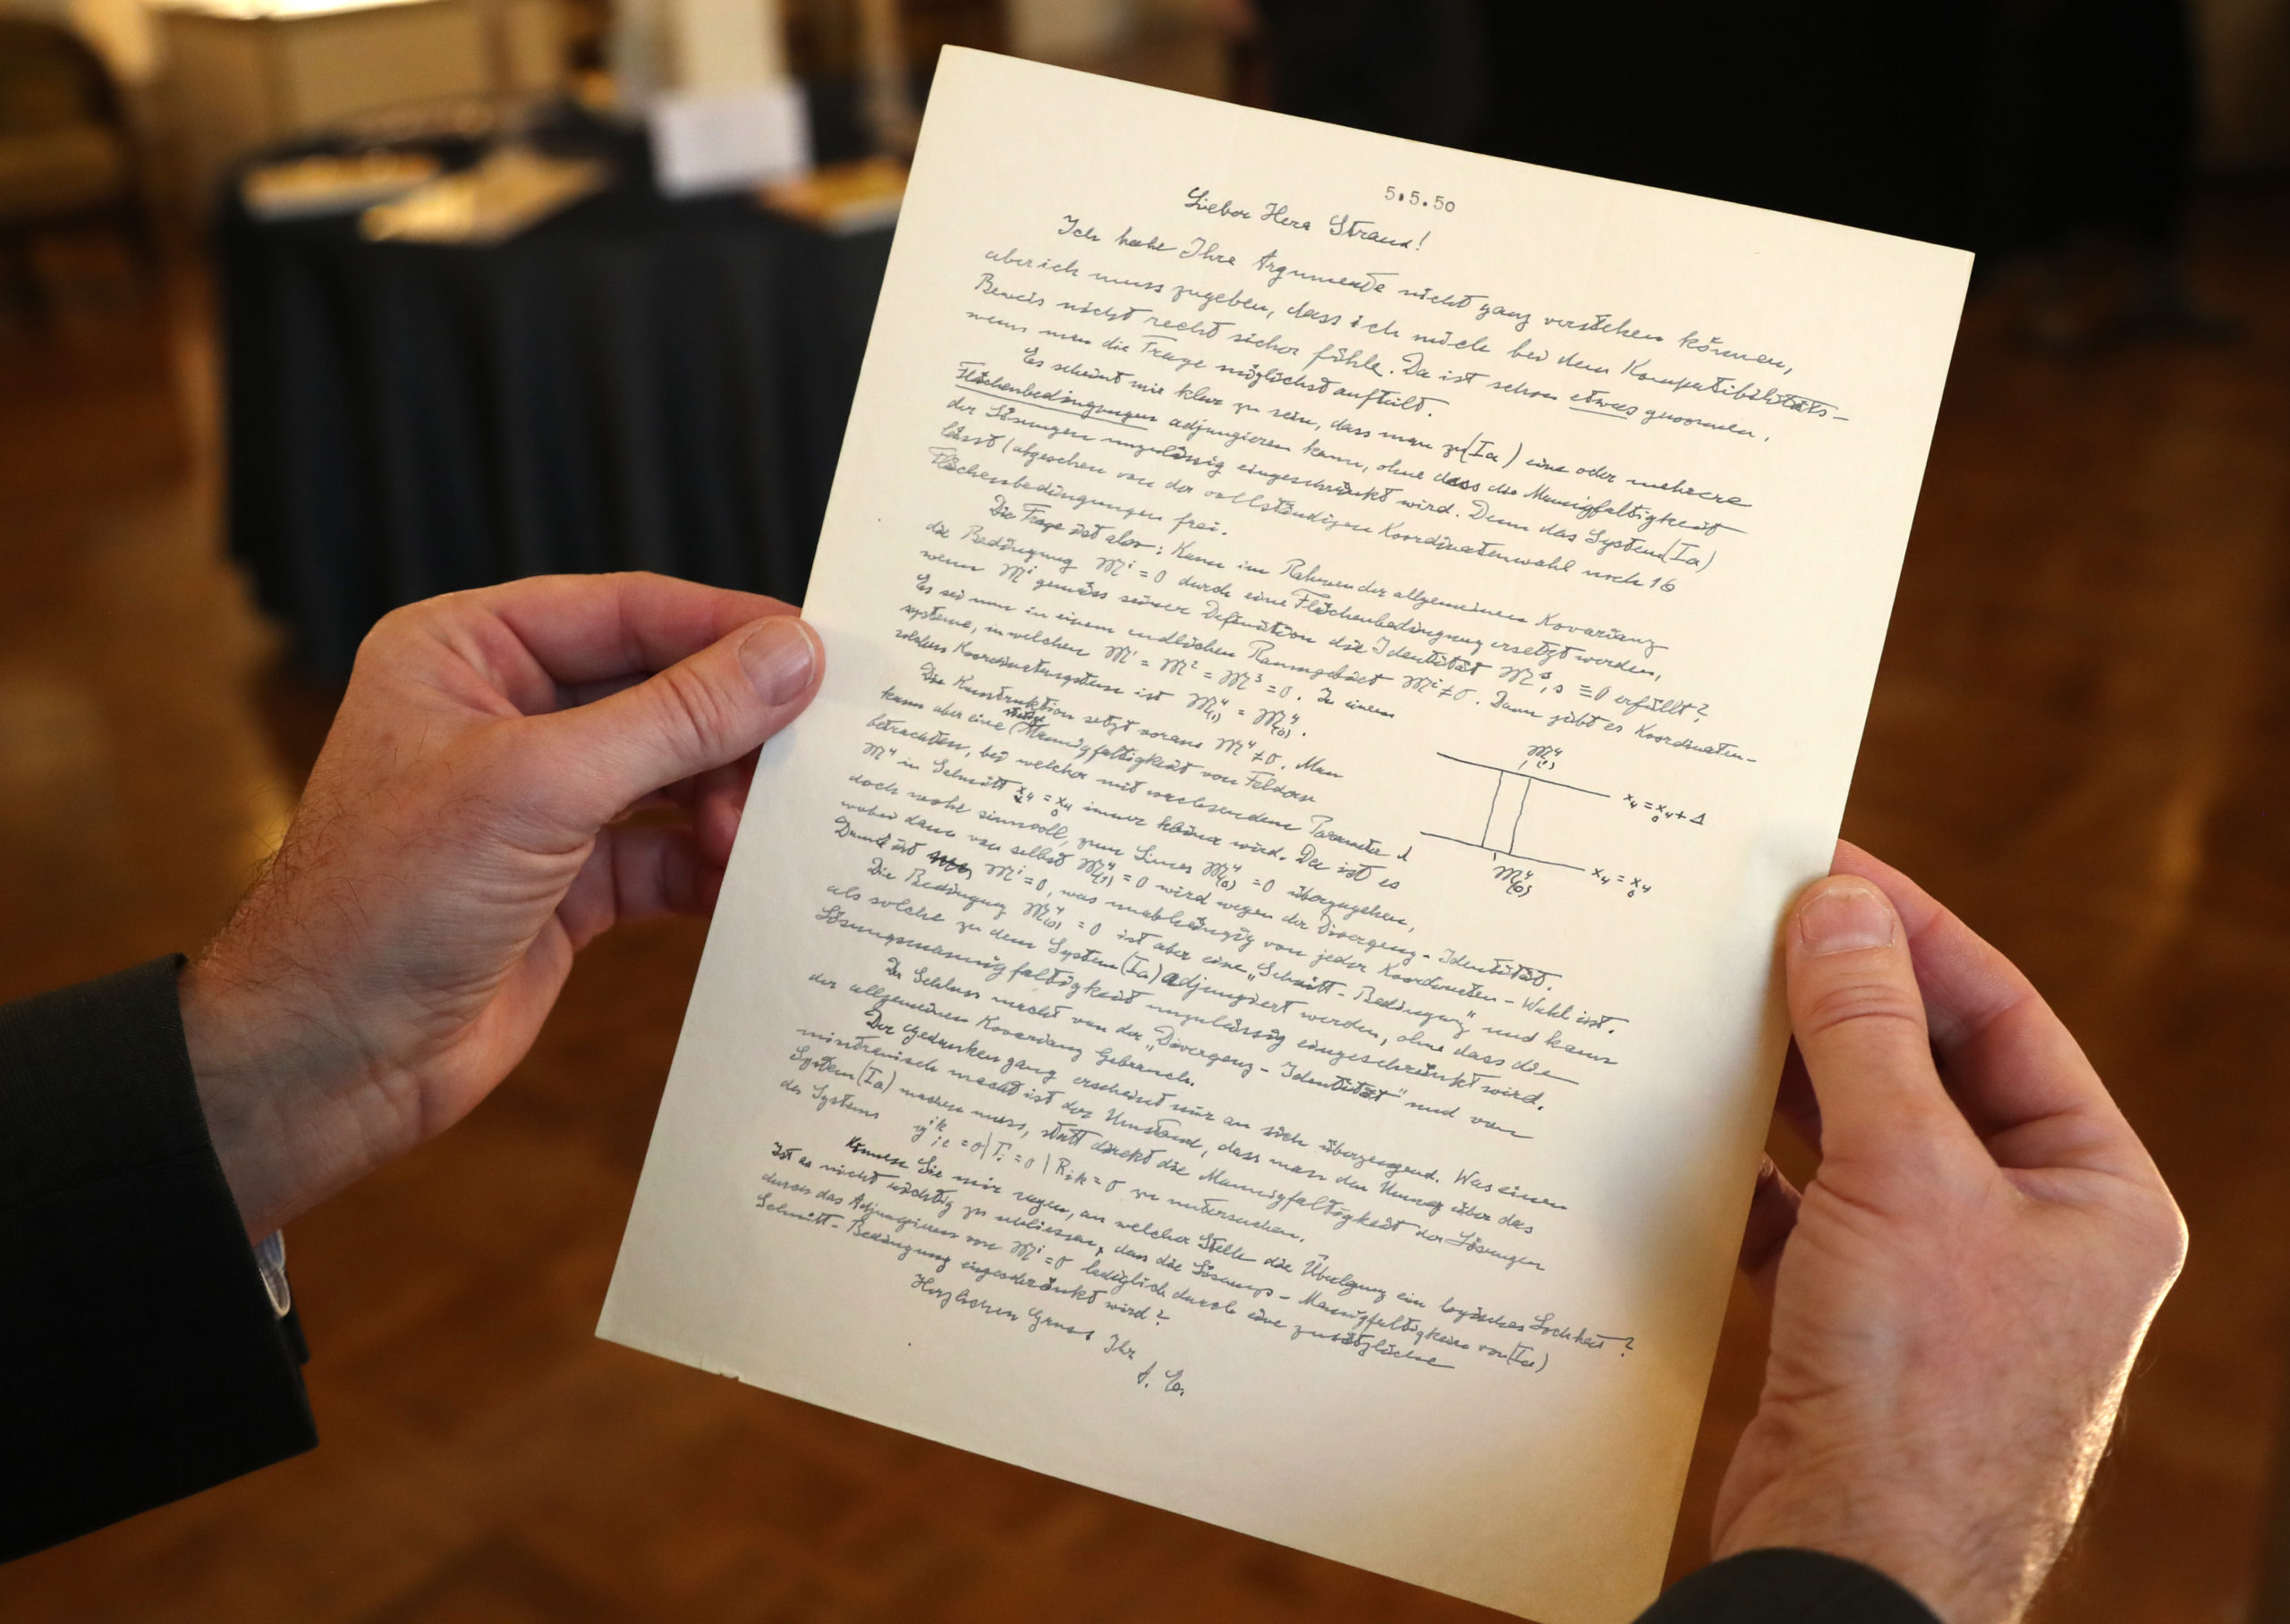 5.5.50
Lieber Herr Straus!
Ich habe Ihre Argumente nicht ganz verstehen können,
aber ich muss zugeben, dass ich mich bei dem Kompatibilitäts-
Beweis nicht recht sicher fühle. Da ist schon etwas gewonnen,
wenn man die Frage möglichst aufteilt.
Es scheint mir klar zu sein, dass man zu (Ia) eine oder mehrere
Flächenbedingungen adjungieren kann, ohne dass die Mannigfaltigkeit
der Lösungen unzulässig eingeschränkt wird. Denn das System (Ia)
lässt (abgesehen von der vollständigen Koordinatenwahl noch 16
Flächenbedingungen frei.
Die Frage ist also: Kann im Rahmen der allgemeinen Kovarianz
die Bedingung 𝔐ⁱ = 0 durch eine Flächenbedingung ersetzt werden,
wenn 𝔐ⁱ gemäss seiner Definition die Identität 𝔐ˢ,s ≡ 0 erfüllt?
Es sei nun in einem endlichen Raumgebiet 𝔐ⁱ ≠ 0. Dann gibt es Koordinaten-
systeme, in welchen 𝔐¹ = 𝔐² = 𝔐³ = 0. In einem
solchen Koordinatensystem ist 𝔐⁴(1) = 𝔐⁴(0).
Die Konstruktion setzt voraus 𝔐⁴ ≠ 0. Man
kann aber eine (stetige) Mannigfaltigkeit von Feldern
betrachten, bei welcher mit wachsendem Parameter λ
𝔐⁴ in Schnitt x₄ = x₄ immer kleiner wird. Da ist es
0
doch wohl sinnvoll, zum Limes 𝔐⁴(0) = 0 überzugehen,
wobei dann von selbst 𝔐⁴(1) = 0 wird wegen der Divergenz-Identität.
Damit ist 𝔐ⁱ = 0, was unabhängig von jeder Koordinaten-Wahl ist.
𝔐⁴(1)
x₄ = x₄ + Δ
0
x₄ = x₄
0
𝔐⁴(0)
Die Bedingung 𝔐⁴(0) = 0 ist aber eine „Schnitt-Bedingung" und kann
als solche zu dem System (Ia) adjungiert werden, ohne dass die
Lösungsmannigfaltigkeit unzulässig eingeschränkt wird.
Der Schluss macht von der „Divergenz-Identität" und von
der allgemeinen Kovarianz Gebrauch.
Der Gedankengang erscheint mir an sich überzeugend. Was einen
misstrauisch macht ist der Umstand, dass man den Umweg über das
System (Ia) machen muss, statt direkt die Mannigfaltigkeit der Lösungen
des Systems
= 0 | Γᵢ = 0 | Rik = 0 zu untersuchen.
Können Sie mir sagen, an welcher Stelle die Überlegung ein logisches Loch hat?
Ist es nicht richtig zu schliessen, dass die Lösungs-Mannigfaltigkeit von (Ia)
durch das Adjungieren von 𝔐ⁱ = 0 lediglich durch eine zusätzliche
Schnitt-Bedingung eingeschränkt wird?
Herzlichen Gruss Ihr
A. E.